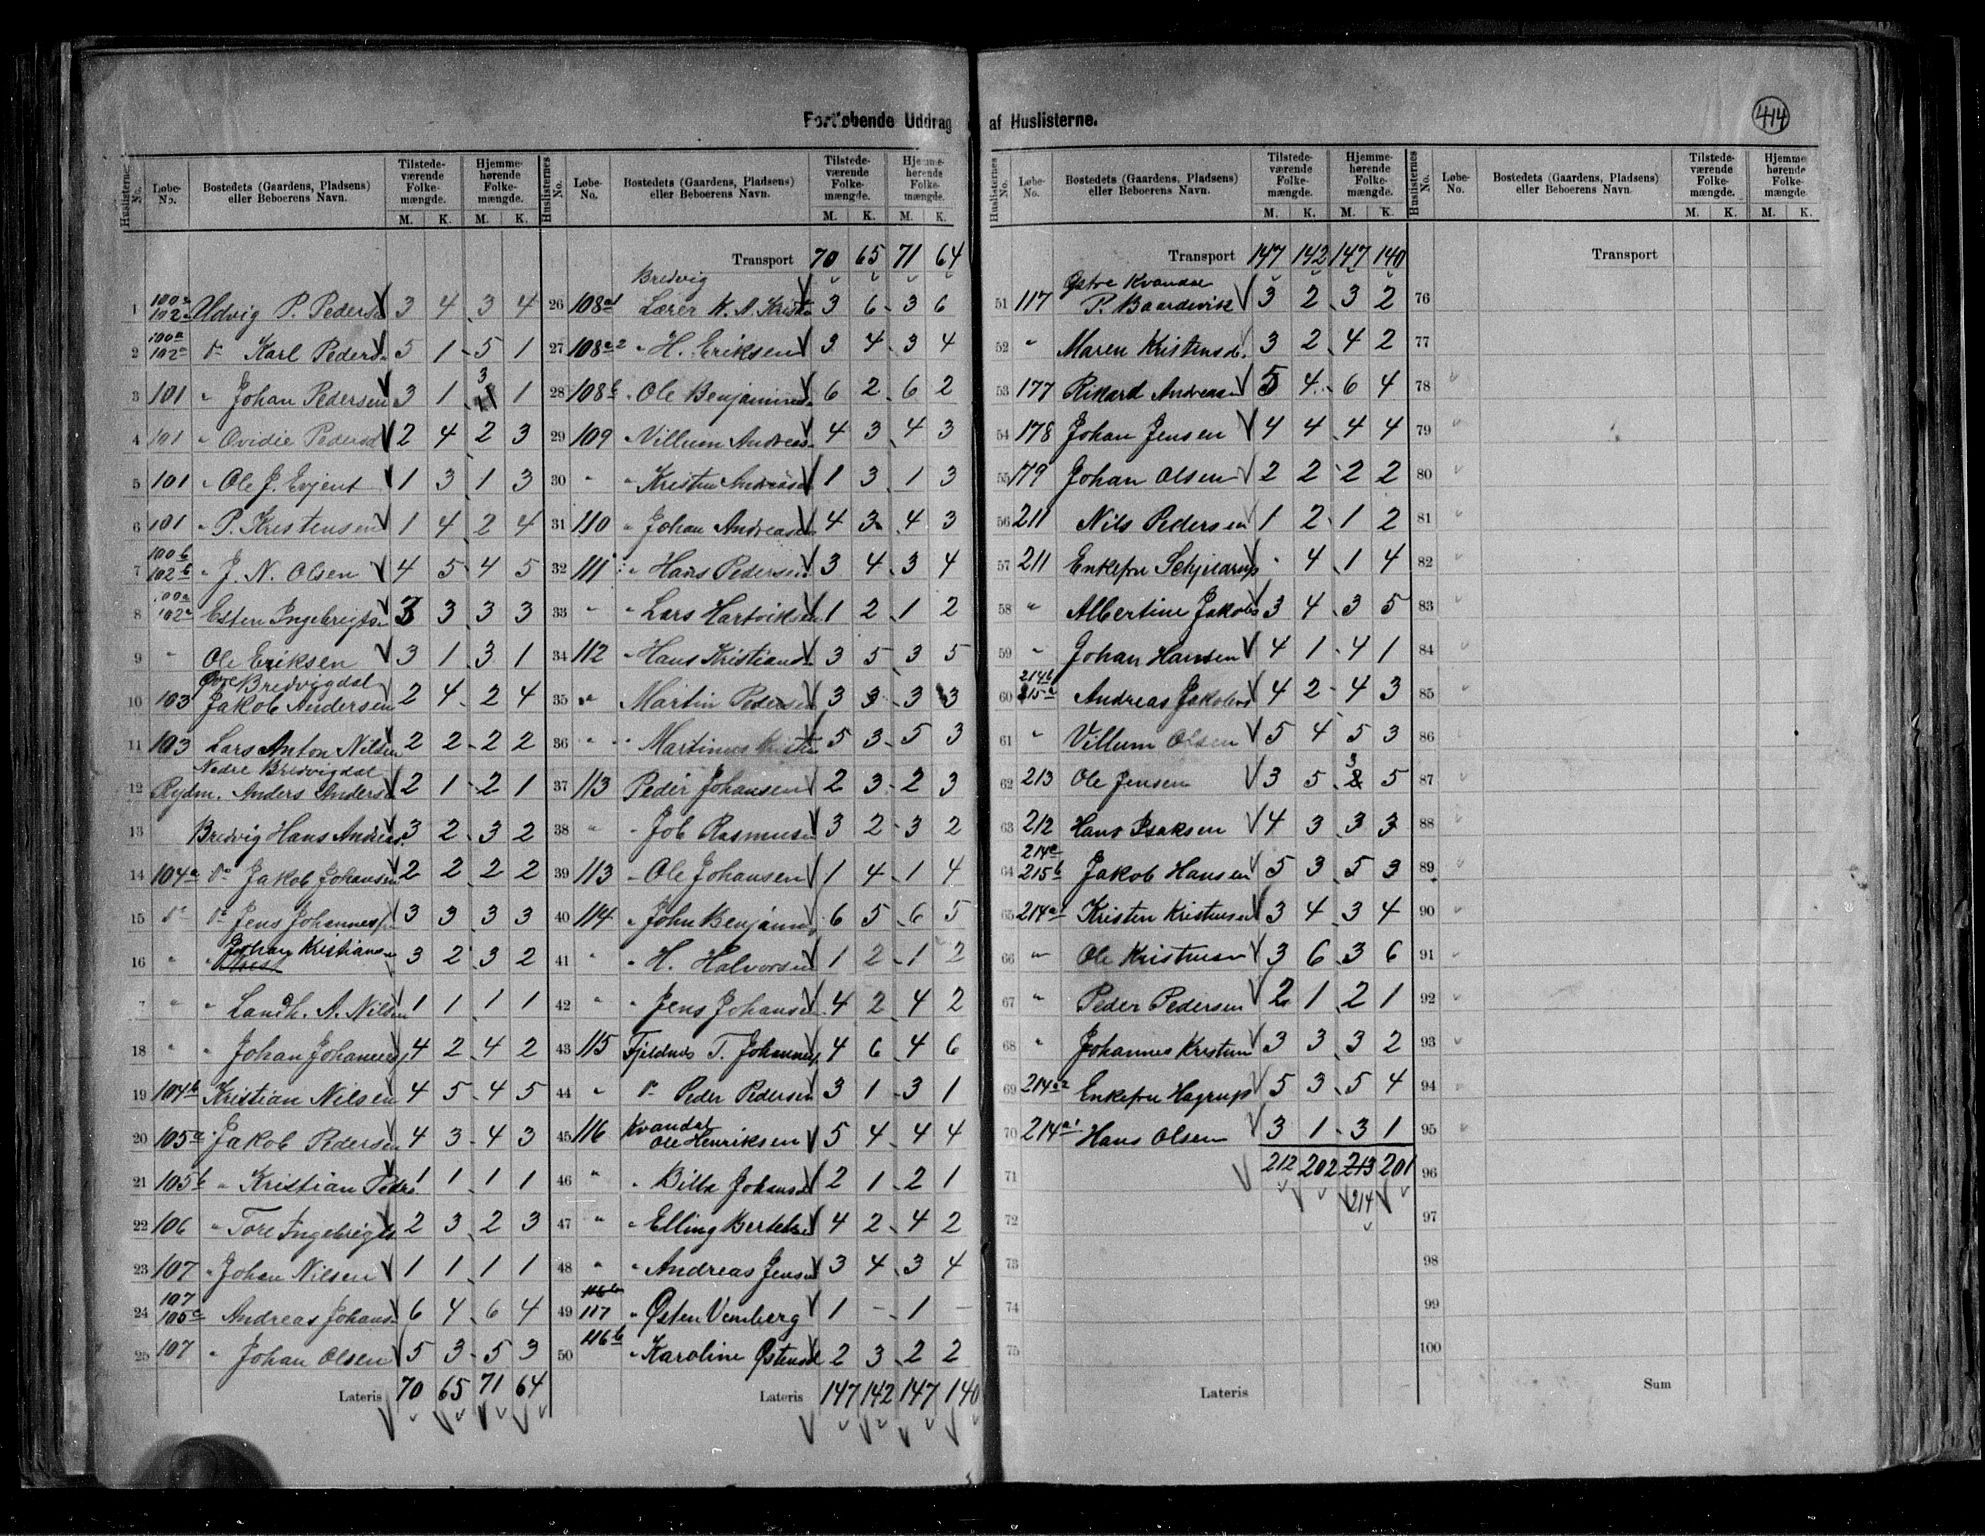 Fortløbende Uddrag af Huslisterne.
414
Huslisternes No. Løbe-No. Bostedets (Gaardens, Pladsens) eller Beboerens Navn. Tilstedeværende Folkemængde. M. K. Hjemmehørende Folkemængde. M. K.
1 100a 102a P. Peders 3 4 3 4
2 100a 102a do Karl Peders 5 1 5 1
3 101 " Johan Pedersen 3 1 3 1
4 101 " Ovidie Pedersd 2 4 2 3
5 101 " Ole J. Evjent 1 3 1 3
6 101 " P. Kristensen 1 4 2 4
7 100b 102b " J. N. Olsen 4 5 4 5
8 100a 102a Esten Ingebrigts 3 3 3 3
9 " Ole Eriksen 3 1 3 1
Øvre Bredvigdal
10 103 Jakob Andersen 2 4 2 4
11 103 Lars Anton Nilsen 2 2 2 2
Nedre Bredvigdal
12 Rydn. Anders Anders 2 1 2 1
13 Bredvig Hans Andreas. 3 2 3 2
14 104a do Jakob Johansen 2 2 2 2
15 do do Jens Johannes 3 3 3 3
16 " " Johan Kristians 3 2 3 2
" " Landh. A. Nilsen 1 1 1 1
18 " " Johan Johannes 4 2 4 2
19 104b Kristian Nilsen 4 5 4 5
20 105a Jakob Pedersen 4 3 4 3
21 105b " Kristian Peders 1 1 1 1
22 106 " Tore Ingebrigts 2 3 2 3
23 107 " Johan Nilsen 1 1 1 1
24 107 105c Andreas Johans 6 4 6 4
25 107 " Johan Olsen 5 3 5 3
Lateris 70 65 71 64
Huslisternes No. Løbe-No. Bostedets (Gaardens, Pladsens) eller Beboerens Navn. Tilstedeværende Folkemængde. M. K. Hjemmehørende Folkemængde. M. K.
Transport 70 65 71 64
Bredvig
26 108a1 Lærer K. A. Krist 3 6 3 6
27 108a2 " H. Eriksen 3 4 3 4
28 108b " Ole Benjamins 6 2 6 2
29 109 " Villum Andreas 4 3 4 3
30 " " Kristen Andreas 1 3 1 3
31 110 " Johan Andreasen 4 3 4 3
32 111 " Hans Pedersen 3 4 3 4
33 " " Lars Hartviksen 1 2 1 2
34 112 " Hans Kristians 3 5 3 5
35 " Martin Pedersen 3 3 3 3
36 " " Martinus Krist 5 3 5 3
37 113 Peder Johansen 2 3 2 3
38 " " Job Rasmusen 3 2 3 2
39 113 " Ole Johansen 1 4 1 4
40 114 " John Benjamins 6 5 6 5
41 " " H. Halvorsen 1 2 1 2
42 " " Jens Johansen 4 2 4 2
43 115 Fjeldnes T. Johannes 4 6 4 6
44 " do Peder Pedersen 3 1 3 1
Kvandal
45 116 Ole Henriksen 5 4 4 4
46 " " Johans 2 1 2 1
47 " " Elling Bertels 4 2 4 2
48 " " Andreas Jensen 3 4 3 4
49 116b 117 " Østen Vemberg 1 – 1 –
50 116b " Karoline Østensd 2 3 2 2
Lateris 147 142 147 140
Huslisternes No. Løbe-No. Bostedets (Gaardens, Pladsens) eller Beboerens Navn. Tilstedeværende Folkemængde. M. K. Hjemmehørende Folkemængde. M. K.
Transport 147 142 147 140
51 117 P. Baardsvik 3 2 3 2
52 " Maren Kristensd. 3 2 4 2
53 177 Rikard Andreasen 5 4 6 4
54 178 Johan Jensen 4 4 4 4
55 179 Johan Olsen 2 2 2 2
56 211 Nils Pedersen 1 2 1 2
57 211 Enkefru Schjelderup - 4 1 4
58 " Albertine Jakobs 3 4 3 5
59 " Johan Hansen 4 1 4 1
60 214b 215a Andreas Jakobs 4 2 4 3
61 " Villum Olsen 5 4 5 3
62 213 Ole Jensen 3 5 3 5
63 212 Hans Isaksen 4 3 3 3
64 214a 215b Jakob Hansen 5 3 5 3
65 214a1 Kristen Kristensen 3 4 3 4
66 " Ole Kristensen 3 6 3 6
67 " Peder Pedersen 2 1 2 1
68 " Johannes Kristen 3 3 3 2
69 214a2 Enkefru Hagrup 5 3 5 4
70 214a1 Hans Olsen 3 1 3 1
71 212 202 213 201
72 214
73
74
75
Lateris
Huslisternes No. Løbe-No. Bostedets (Gaardens, Pladsens) eller Beboerens Navn. Tilstedeværende Folkemængde. M. K. Hjemmehørende Folkemængde. M. K.
Transport
76
77
78
79
80
81
82
83
84
85
86
87
88
89
90
91
92
93
94
95
96
97
98
99
100
Sum